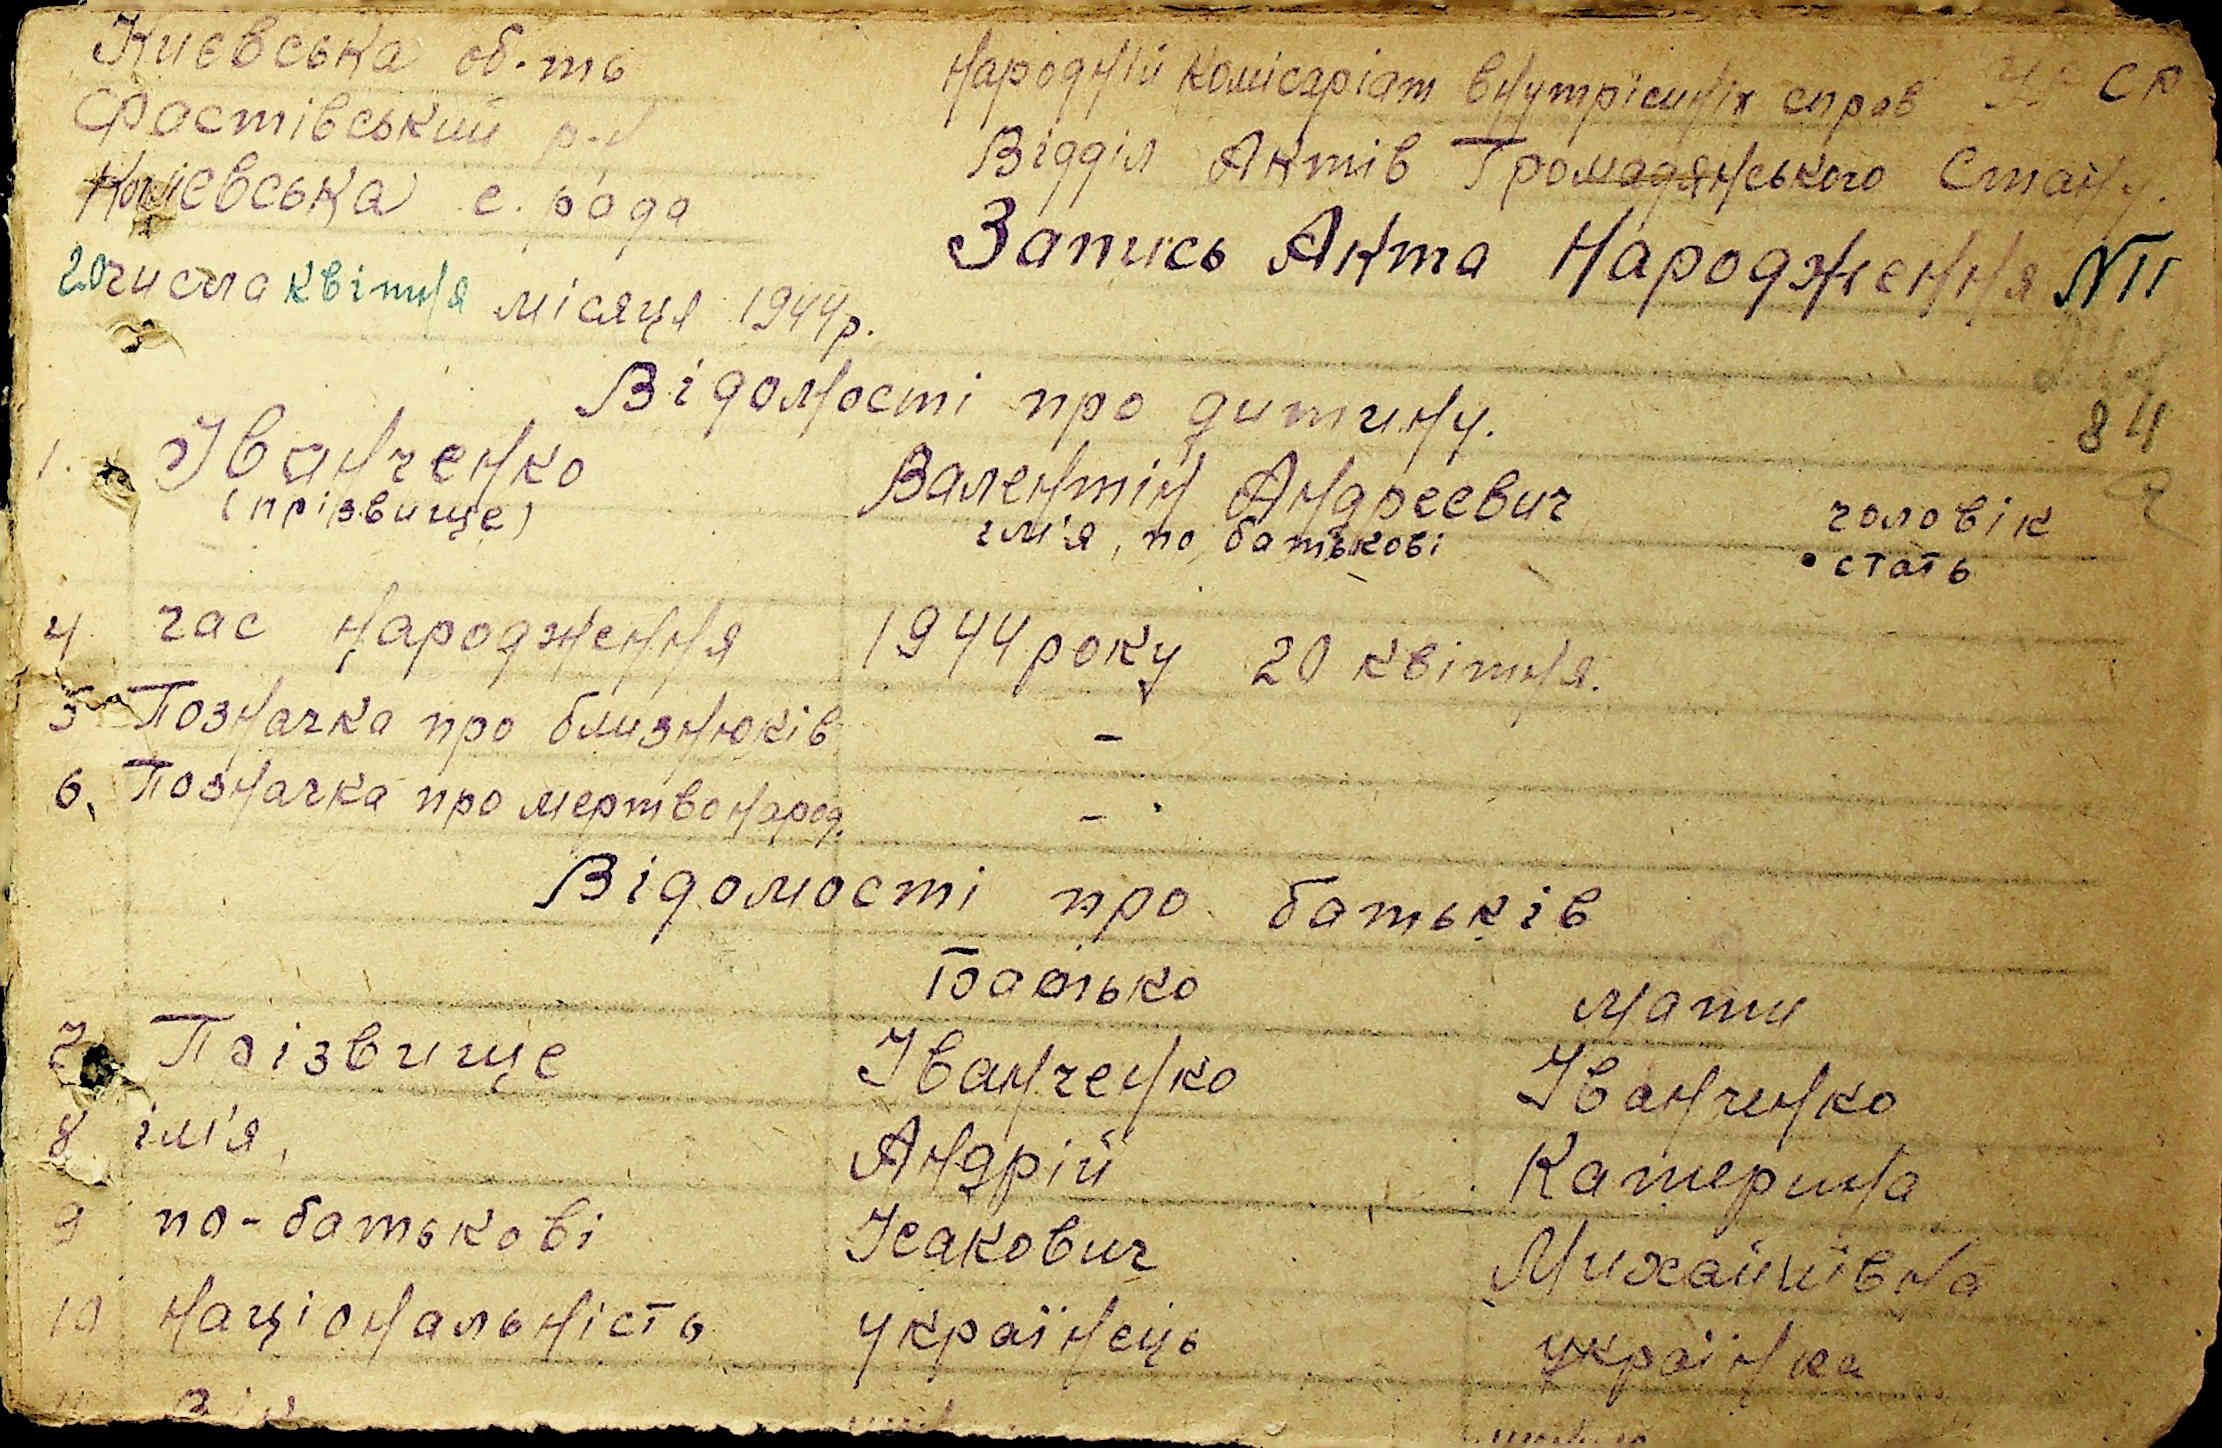 Києвська об-ть
Фастівський р-н
с. рада
20 числа квітня місяця 1944 р.
Народній Комісаріат внутрісшніх справ
Відділ Актів Громадянського Стану.
Запись Акта Народження №11
Відомості про дитину.
84
1. Іванченко Валентін Андреевич чоловік
(прізвище) імя, по батькові стать
4 час народження 1944 року 20 квітня.
5 Позначка про близнюків -
6. Позначка про мертвонарод. -
Відомості про батьків
Батько мати
7 Прізвище Іванченко Іванченко
8 ім'я, Андрій Катерина
9 по-батькові Ісакович Михайлівна
10 національність українець українка